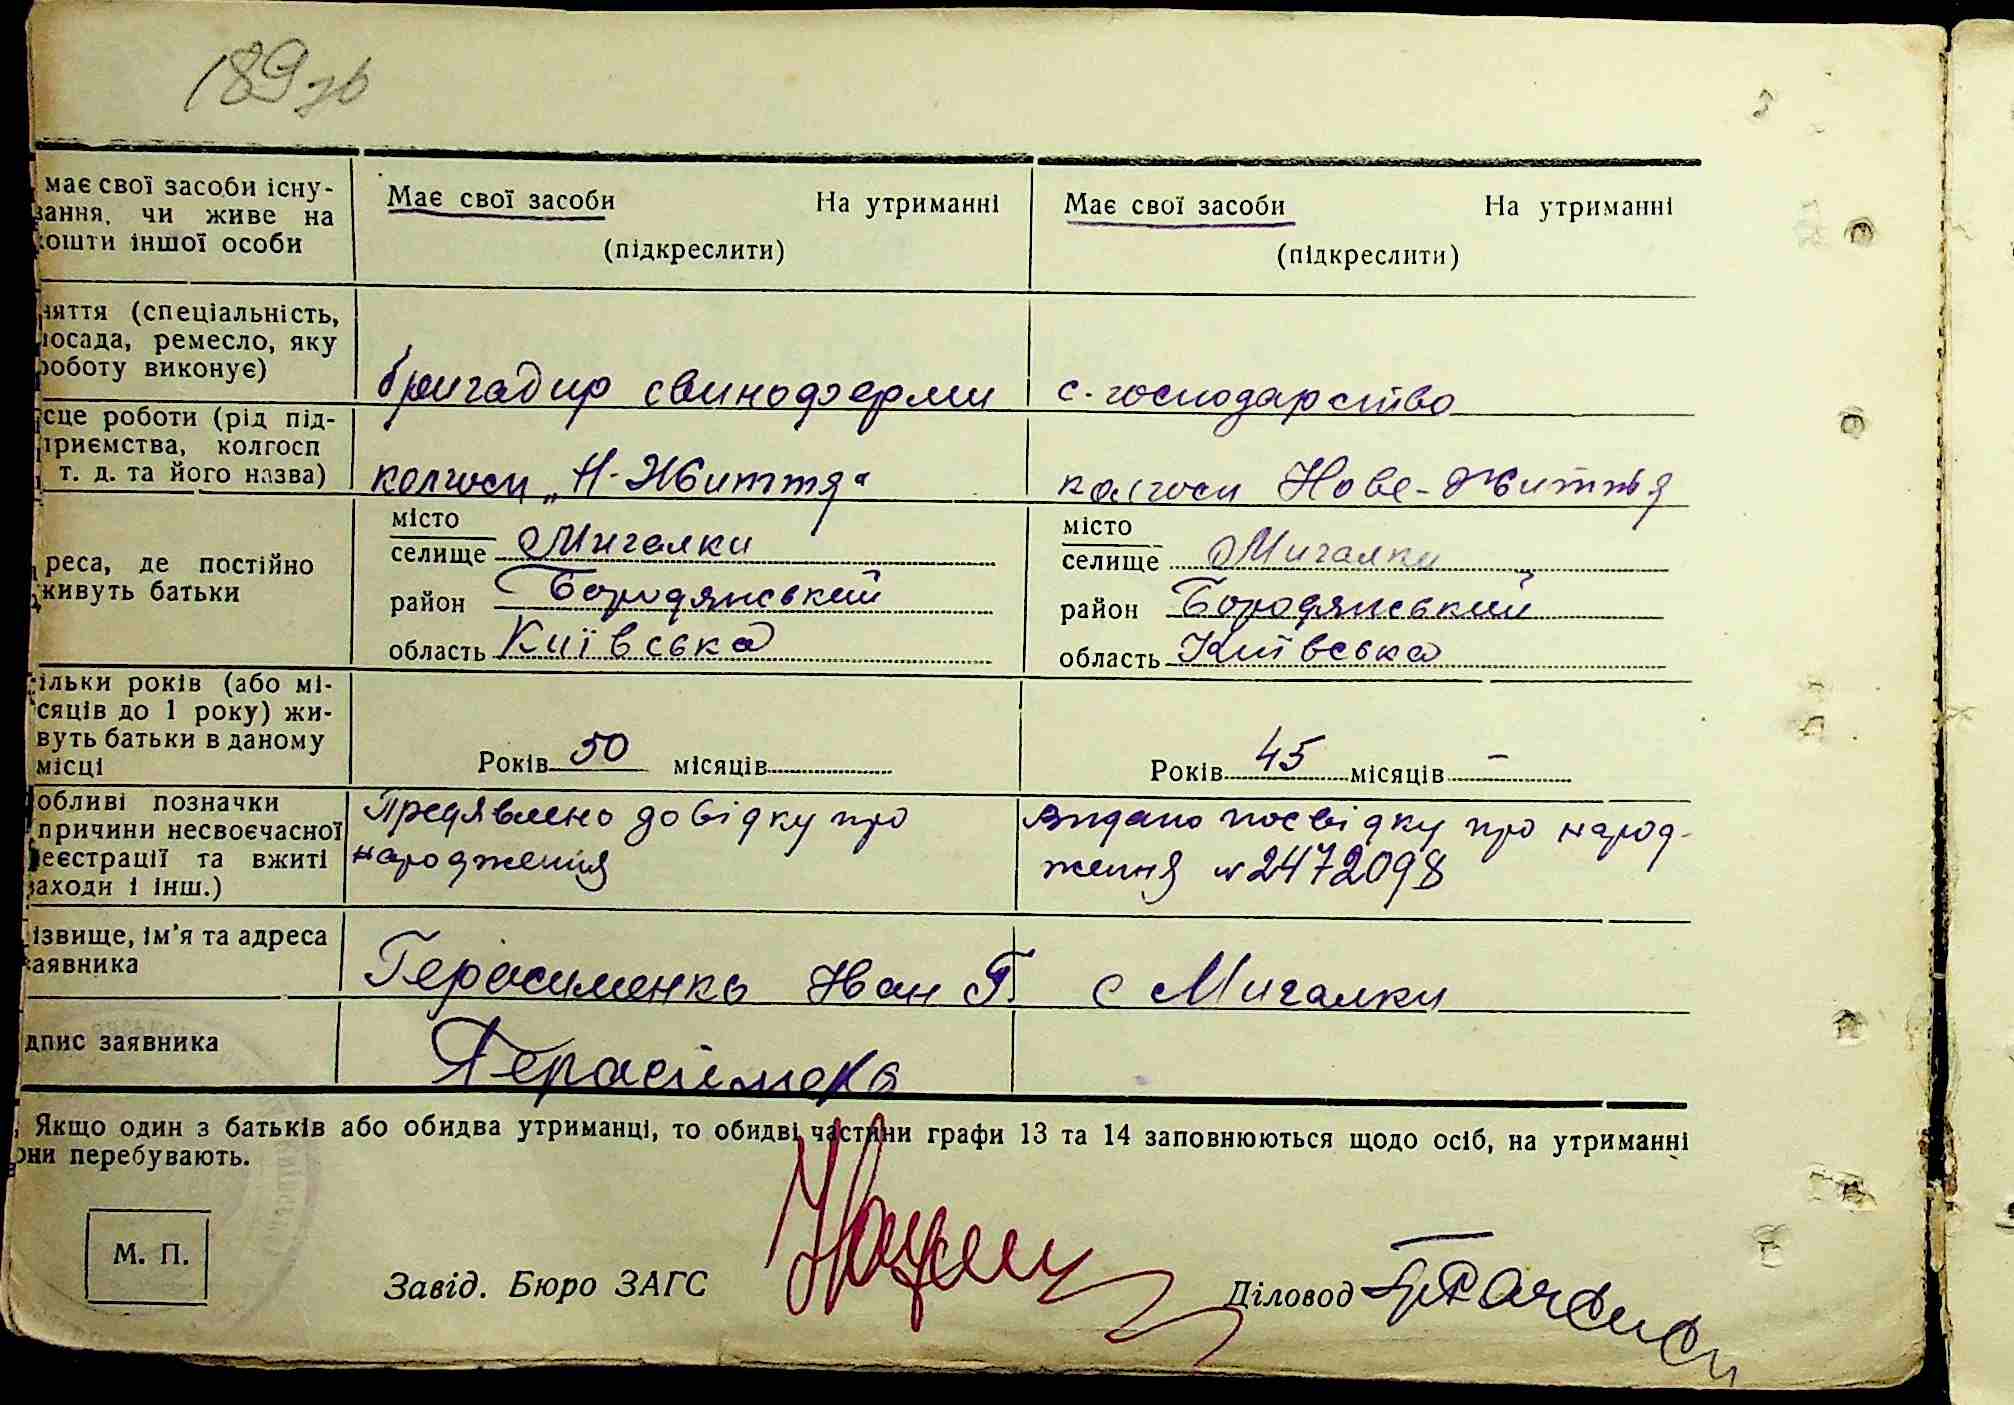 189 зв
має свої засоби існу-
вання, чи живе на
кошти іншої особи
Має свої засоби На утриманні
(підкреслити)
Має свої засоби На утриманні
(підкреслити)
няття (спеціальність,
посада, ремесло, яку
роботу виконує)
бригадир свиноферми
с. господарство
сце роботи (рід під-
приємства, колгосп
т. д. та його назва)
колгосп „Н-Життя“
колгосп Нове-Життя
реса, де постійно
живуть батьки
місто
селище Мигалки
район Бородянський
область Київська
місто
селище Мигалки
район Бородянський
область Київська
ільки років (або мі-
сяців до 1 року) жи-
вуть батьки в даному
місці
Років 50 місяців
Років 45 місяців –
обливі позначки
причини несвоєчасної
реєстрації та вжиті
заходи і інш.)
Предявлено довідку про
народження
Видано посвідку про народ-
ження № 2472098
ізвище, ім'я та адреса
заявника
Герасименко Іван П. с Мигалки
дпис заявника
Герасімеко
Якщо один з батьків або обидва утриманці, то обидві частини графи 13 та 14 заповнюються щодо осіб, на утриманні
они перебувають.
М. П.
Завід. Бюро ЗАГС
Діловод